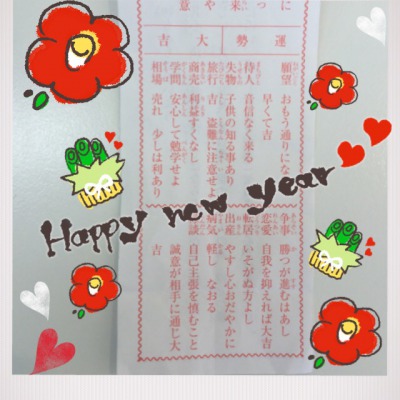 運勢 大吉
願望 おもう通りにな
早くて吉
待人 音信なく来る
失物 子供の知る事あり
旅行 吉 盗難に注意せよ
商売 利益すくなし
学問 安心して勉学せよ
相場 売れ 少しは利あり
Happy new year
争事 勝つが進むはあし
恋愛 自我を抑えれば大吉
転居 いそがぬ方よし
出産 やすし心おだやかに
病気 軽し なおる
談 自己主張を慎むこと
誠意が相手に通じ大
吉